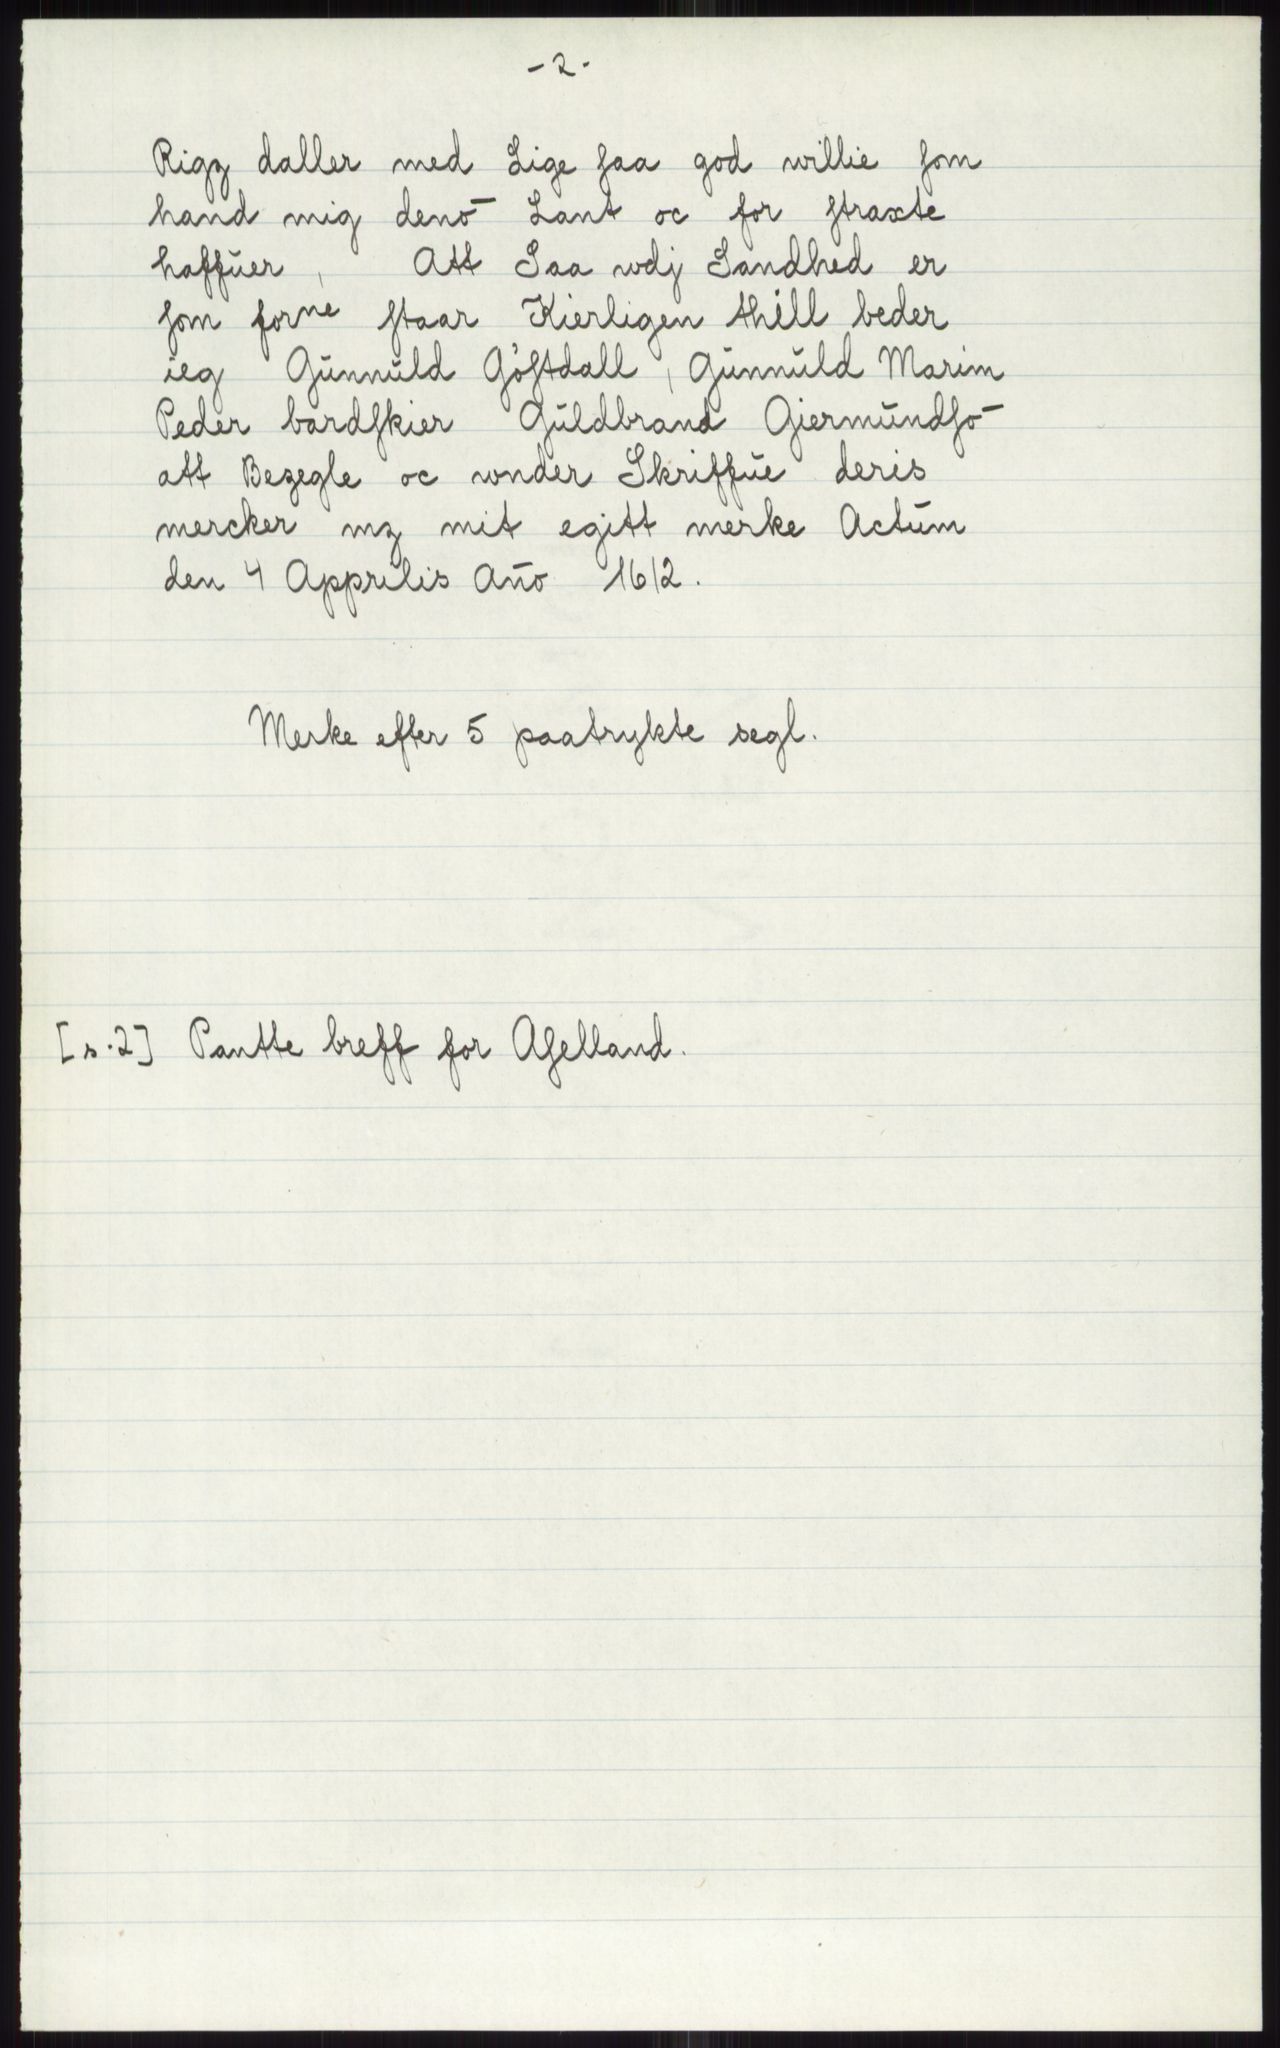 - 2 -
Rigz daller med Lige saa god willie som
hand mig denō Lant oc for straxte
haffŭer, Att Saa wdj Sandhed er
som forne staar Kierligen thill beder
ieg Gŭnnŭld Göstdall, Gŭnnŭld Marim
Peder bardskier Gŭldbrand Giermŭndsō
att Bezegle oc wnder Skriffŭe deris
mercker mz mit egitt merke Actŭm
den 4 Apprilis Año 1612.
Merke efter 5 paatrykte segl.
[s. 2] Pantte breff for Aselland.